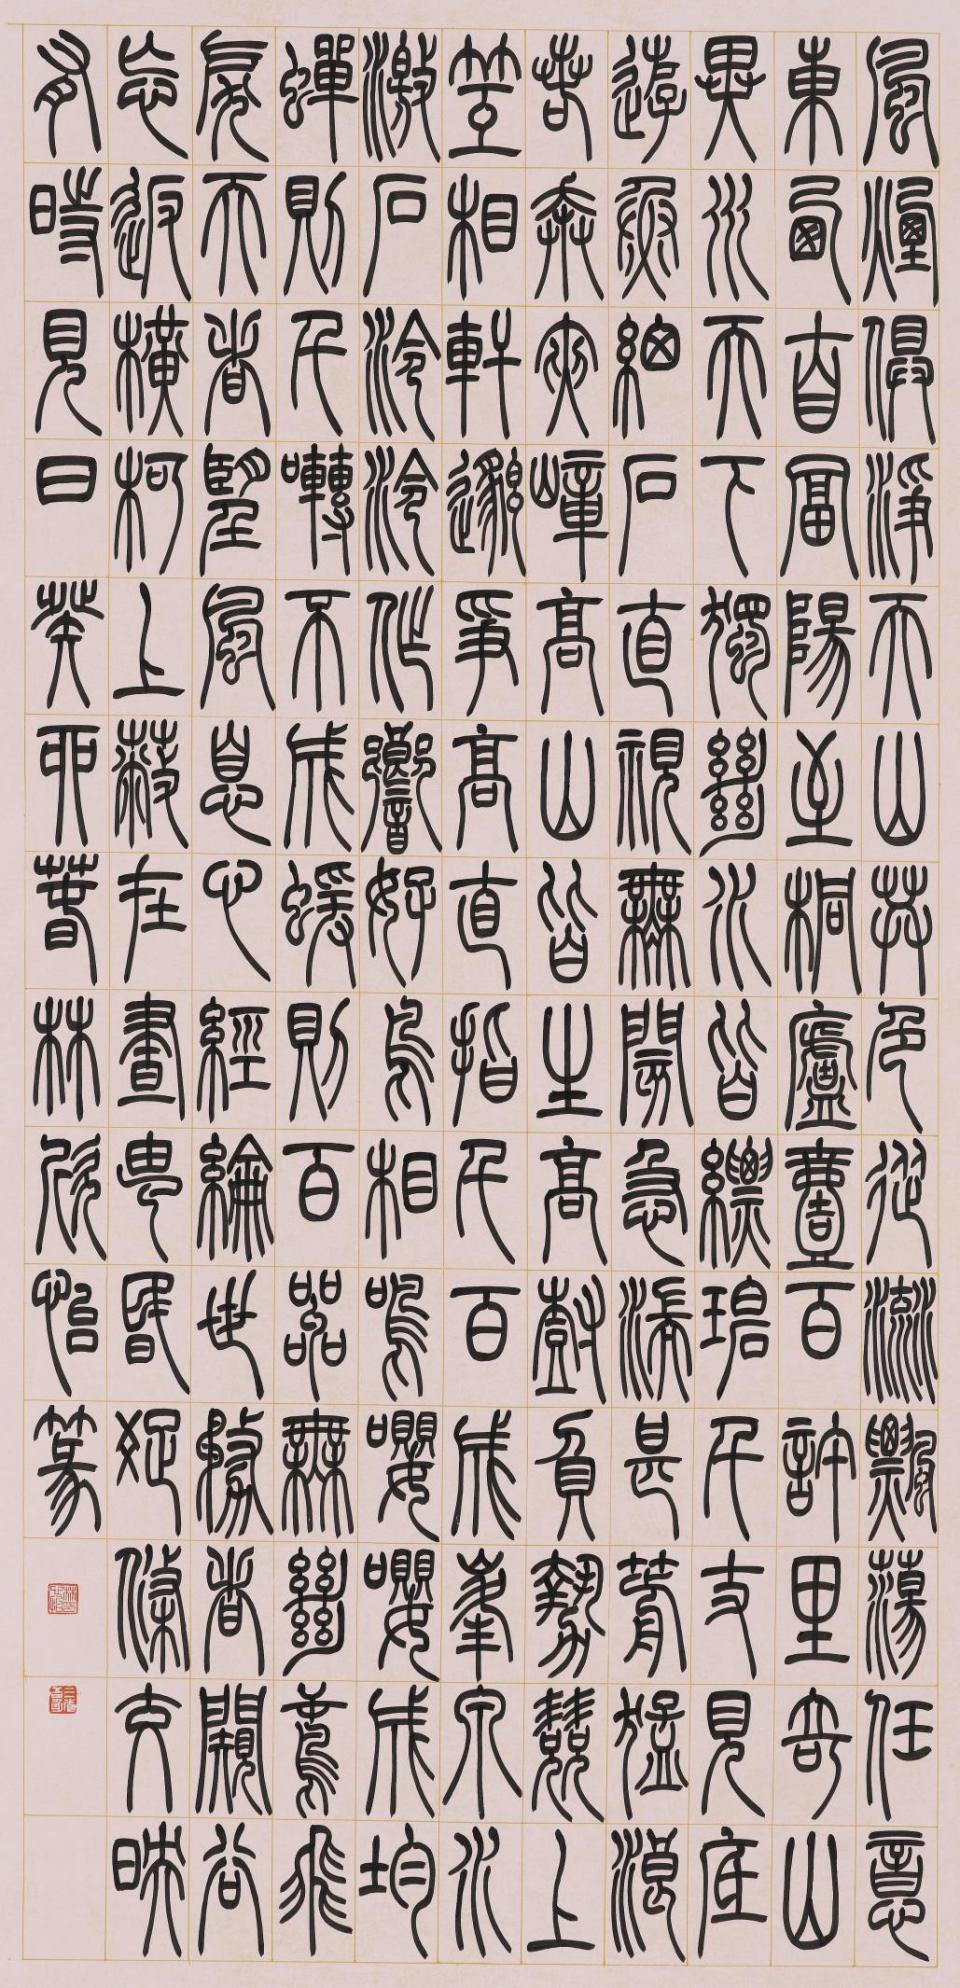 風煙俱淨天山共色從流飄蕩任意
東西自富陽至桐廬壹百許里奇山
異水天下獨絕水皆縹碧千丈見底
遊魚細石直視無閡急湍甚箭猛浪
若奔夾嶂高山皆生高樹負勢競上
互相軒邈爭高直指千百成峯泉水
激石泠泠作響好鳥相鳴嚶嚶成均
蟬則千囀不成蝯則百嘂無絕鳶飛
戾天者望風息心經綸世務者闚谷
忘返橫柯上蔽在晝猶昏疏條交映
有時見日癸卯春林欣怡篆